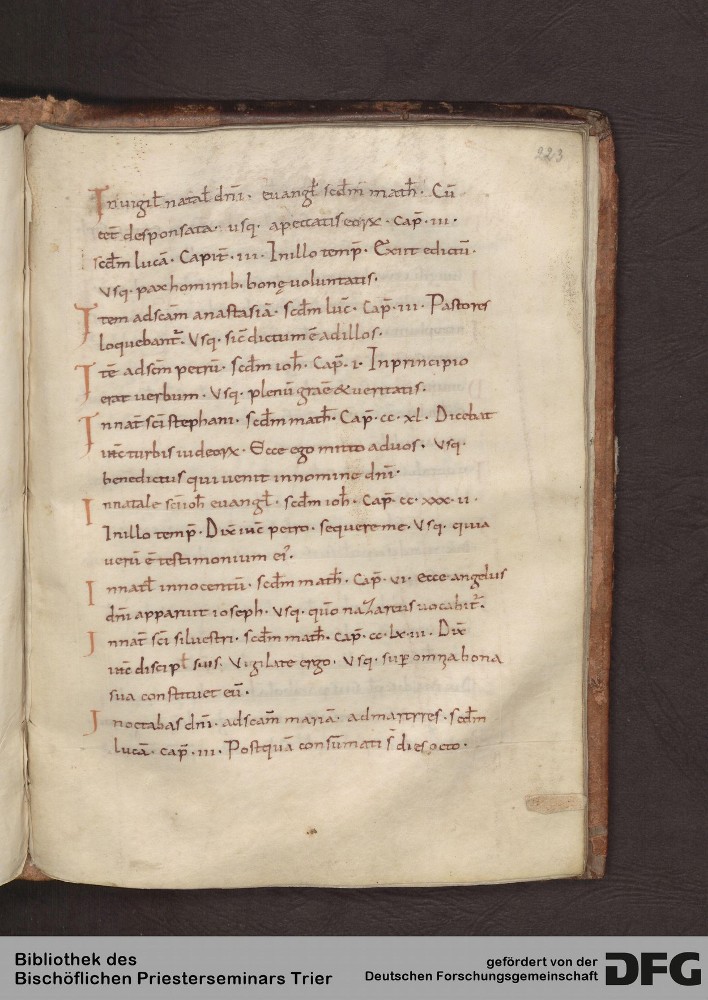 223
In uigil̄ natal̄ dn̄i· euangl̄ scd̄m math̄· Cū
eēt desponsata· usq· a peccatis eorꝝ· cap̄· iii·
scd̄m lucā· Capit̄· iii· In illo temp̄· Exiit edictū·
usq· pax hominib· bonę uoluntatis·
Item ad scām anastasiā· scd̄m luc̄· cap̄· iii· Pastores
loquebant᷑· Usq· sic̄ dictum ē ad illos·
Itē ad scm̄ petrū· scd̄m ioh̄· Cap̄· i· In principio
erat uerbum· Usq· plenū grae̅ & ueritatis·
In nat̄ sc̄i stephani· scd̄m math̄· Cap̄· cc· xl· Dicebat
ih̄c turbis iudeorꝝ· Ecce ego mitto ad uos· Usq·
benedictus qui uenit in nomine dn̄i·
In natale sc̄i ioh̄ euangl̄· scd̄m ioh̄· Cap̄· cc· xxx· ii·
In illo temp̄· Dix̄ ih̄c petro· sequere me· Usq· quia
uerū ē testimonium ei᷒·
In natl̄ innocentū· scd̄m math̄· Cap̄· vi· ecce angelus
dn̄i apparuit ioseph· usq· qūo nazareus uocabit᷑·
In nat̄ sc̄i siluestri· scd̄m math̄· cap̄· cc· lx· iii· Dix̄
ih̄c discipl̄ suis· Vigilate ergo· usq· sup̄ omnia bona
sua constituet eū·
In octabas dn̄i· ad scām mariā· ad martyres· scd̄m
lucā· cap̄· iii· Postquā consūmati s̄ dies octo·
Bibliothek des
Bischöflichen Priesterseminars Trier
gefördert von der
Deutschen Forschungsgemeinschaft
DFG